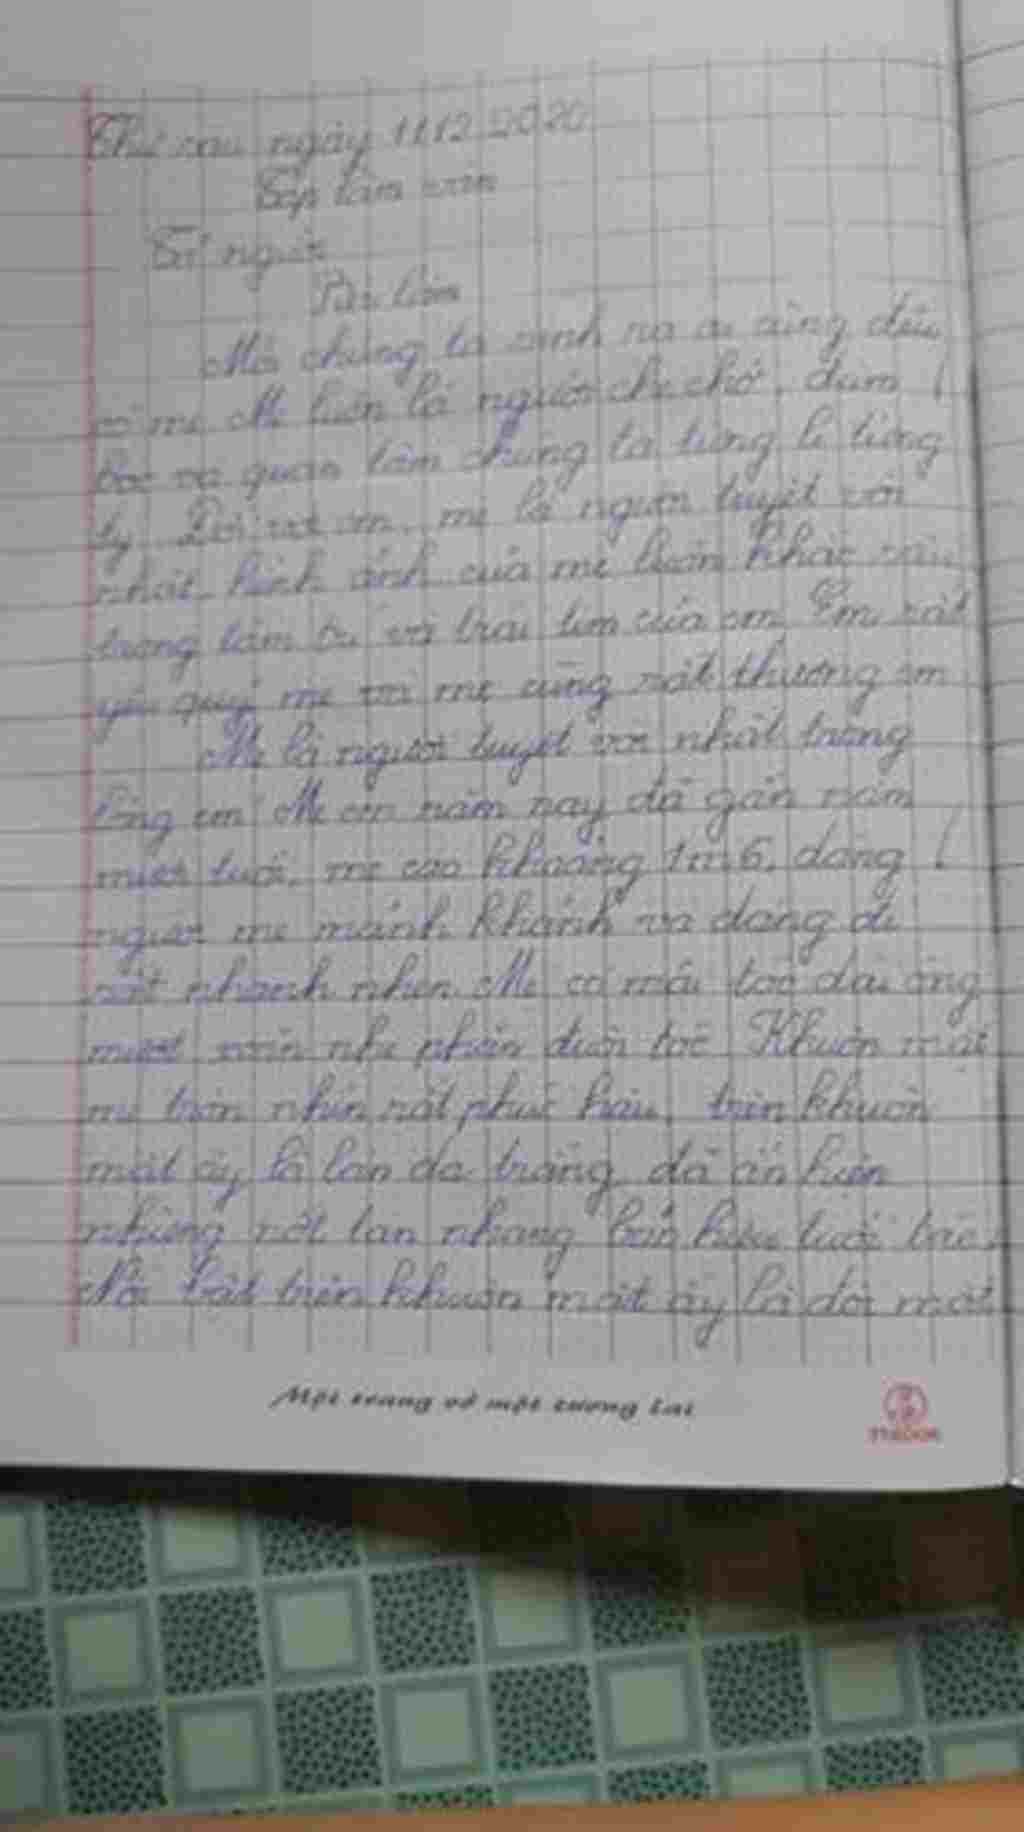 Thứ sáu ngày 11.12.2020
Tập làm văn
Tả người
Bài làm
Mỗi chúng ta sinh ra ai cũng đều
có mẹ. Mẹ luôn là người che chở, đùm
bọc và quan tâm chúng ta từng li từng
tý. Đối với em, mẹ là người tuyệt vời
nhất, hình ảnh của mẹ luôn khắc sâu
trong tâm trí và trái tim của em. Em rất
yêu quý mẹ và mẹ cũng rất thương em
Mẹ là người tuyệt vời nhất trong
lòng em. Mẹ em năm nay đã gần năm
mươi tuổi, mẹ cao khoảng 1m6, dáng
người mẹ mảnh khảnh và dáng đi
rất nhanh nhẹn. Mẹ có mái tóc dài óng
mượt, xoăn nhẹ phần đuôi tóc. Khuôn mặt
mẹ tròn nhìn rất phúc hậu, trên khuôn
mặt ấy là làn da trắng, đã ẩn hiện
những nốt tàn nhang tuổi tác.
Nổi bật trên khuôn mặt ấy là đôi mắt
Một trang vở một tương lai